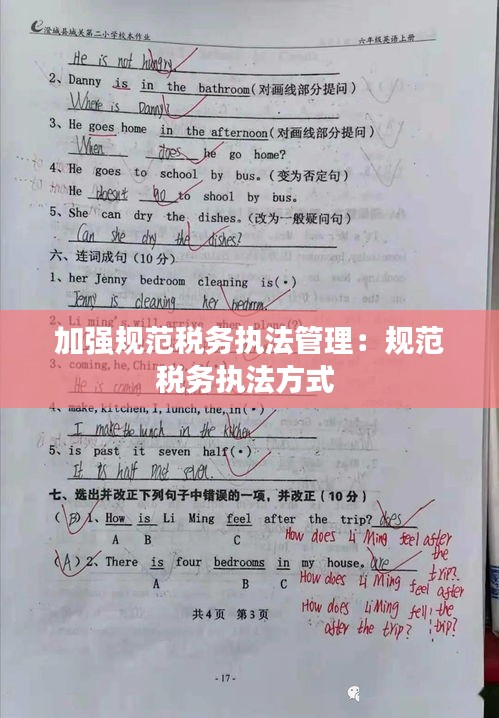 澄城县城关第二小学校本作业 六年级英语上册
He is not hungry.
2、Danny is in the bathroom(对画线部分提问)
Where is Danny?
3、He goes home in the afternoon(对画线部分提问)
When does he go home?
4、He goes to school by bus。(变为否定句)
He doesn't go to shool by bus.
5、She can dry the dishes。(改为一般疑问句)
Can she dry the dishes?
六、连词成句(10分)
1、her Jenny bedroom cleaning is(·)
Jenny is cleaning her bedroom.
加强规范税务执法管理：规范
税务执法方式
3、coming,he,
He is coming
4、make,kitchen,I,lunch,the,in(·)
I make the lunch in the kitchen
5、is past it seven half(·)
It is half past seven.
七、选出并改正下列句子中错误的一项，并改正(10分)
(B)1、How is Li Ming feel after the trip? does
A B C
How does Li Ming feel after the trip?
(A)2、There is four bedrooms in my house。are
A B C
How does Li Ming feel after the trip?
How does Li Ming fell after the trip?
共4页 第3页
- 17 -